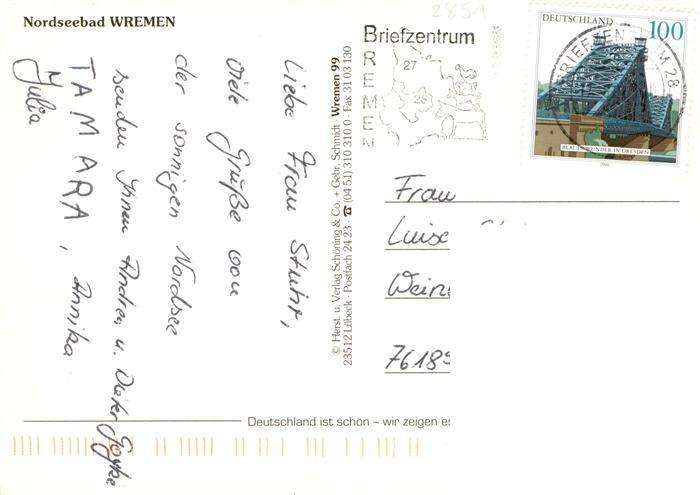 Nordseebad WREMEN
Liebe Frau Stuhr,
viele Grüße von
der sonnigen Nordsee
senden Ihnen Andrea u. Dieter
TAMARA, Annika
Julia
© Herst. u. Verlag Schöning & Co. + Gebr. Schmidt · Wremen 99
23512 Lübeck · Postfach 24 23 · ☎ (04 51) 310 310 0 · Fax 31 03 130
2851
Briefzentrum
BREMEN
27
28
DEUTSCHLAND
100
BRIEFZEN
M 28
BLAUES WUNDER IN DRESDEN
Frau
Luise
Wein
7618
Deutschland ist schön – wir zeigen es